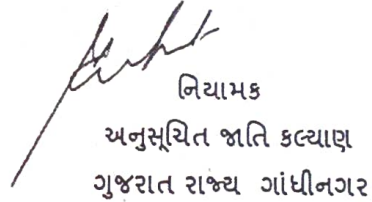 નિયામક
અનુસૂચિત જાતિ કલ્યાણ
ગુજરાત રાજ્ય ગાંધીનગર